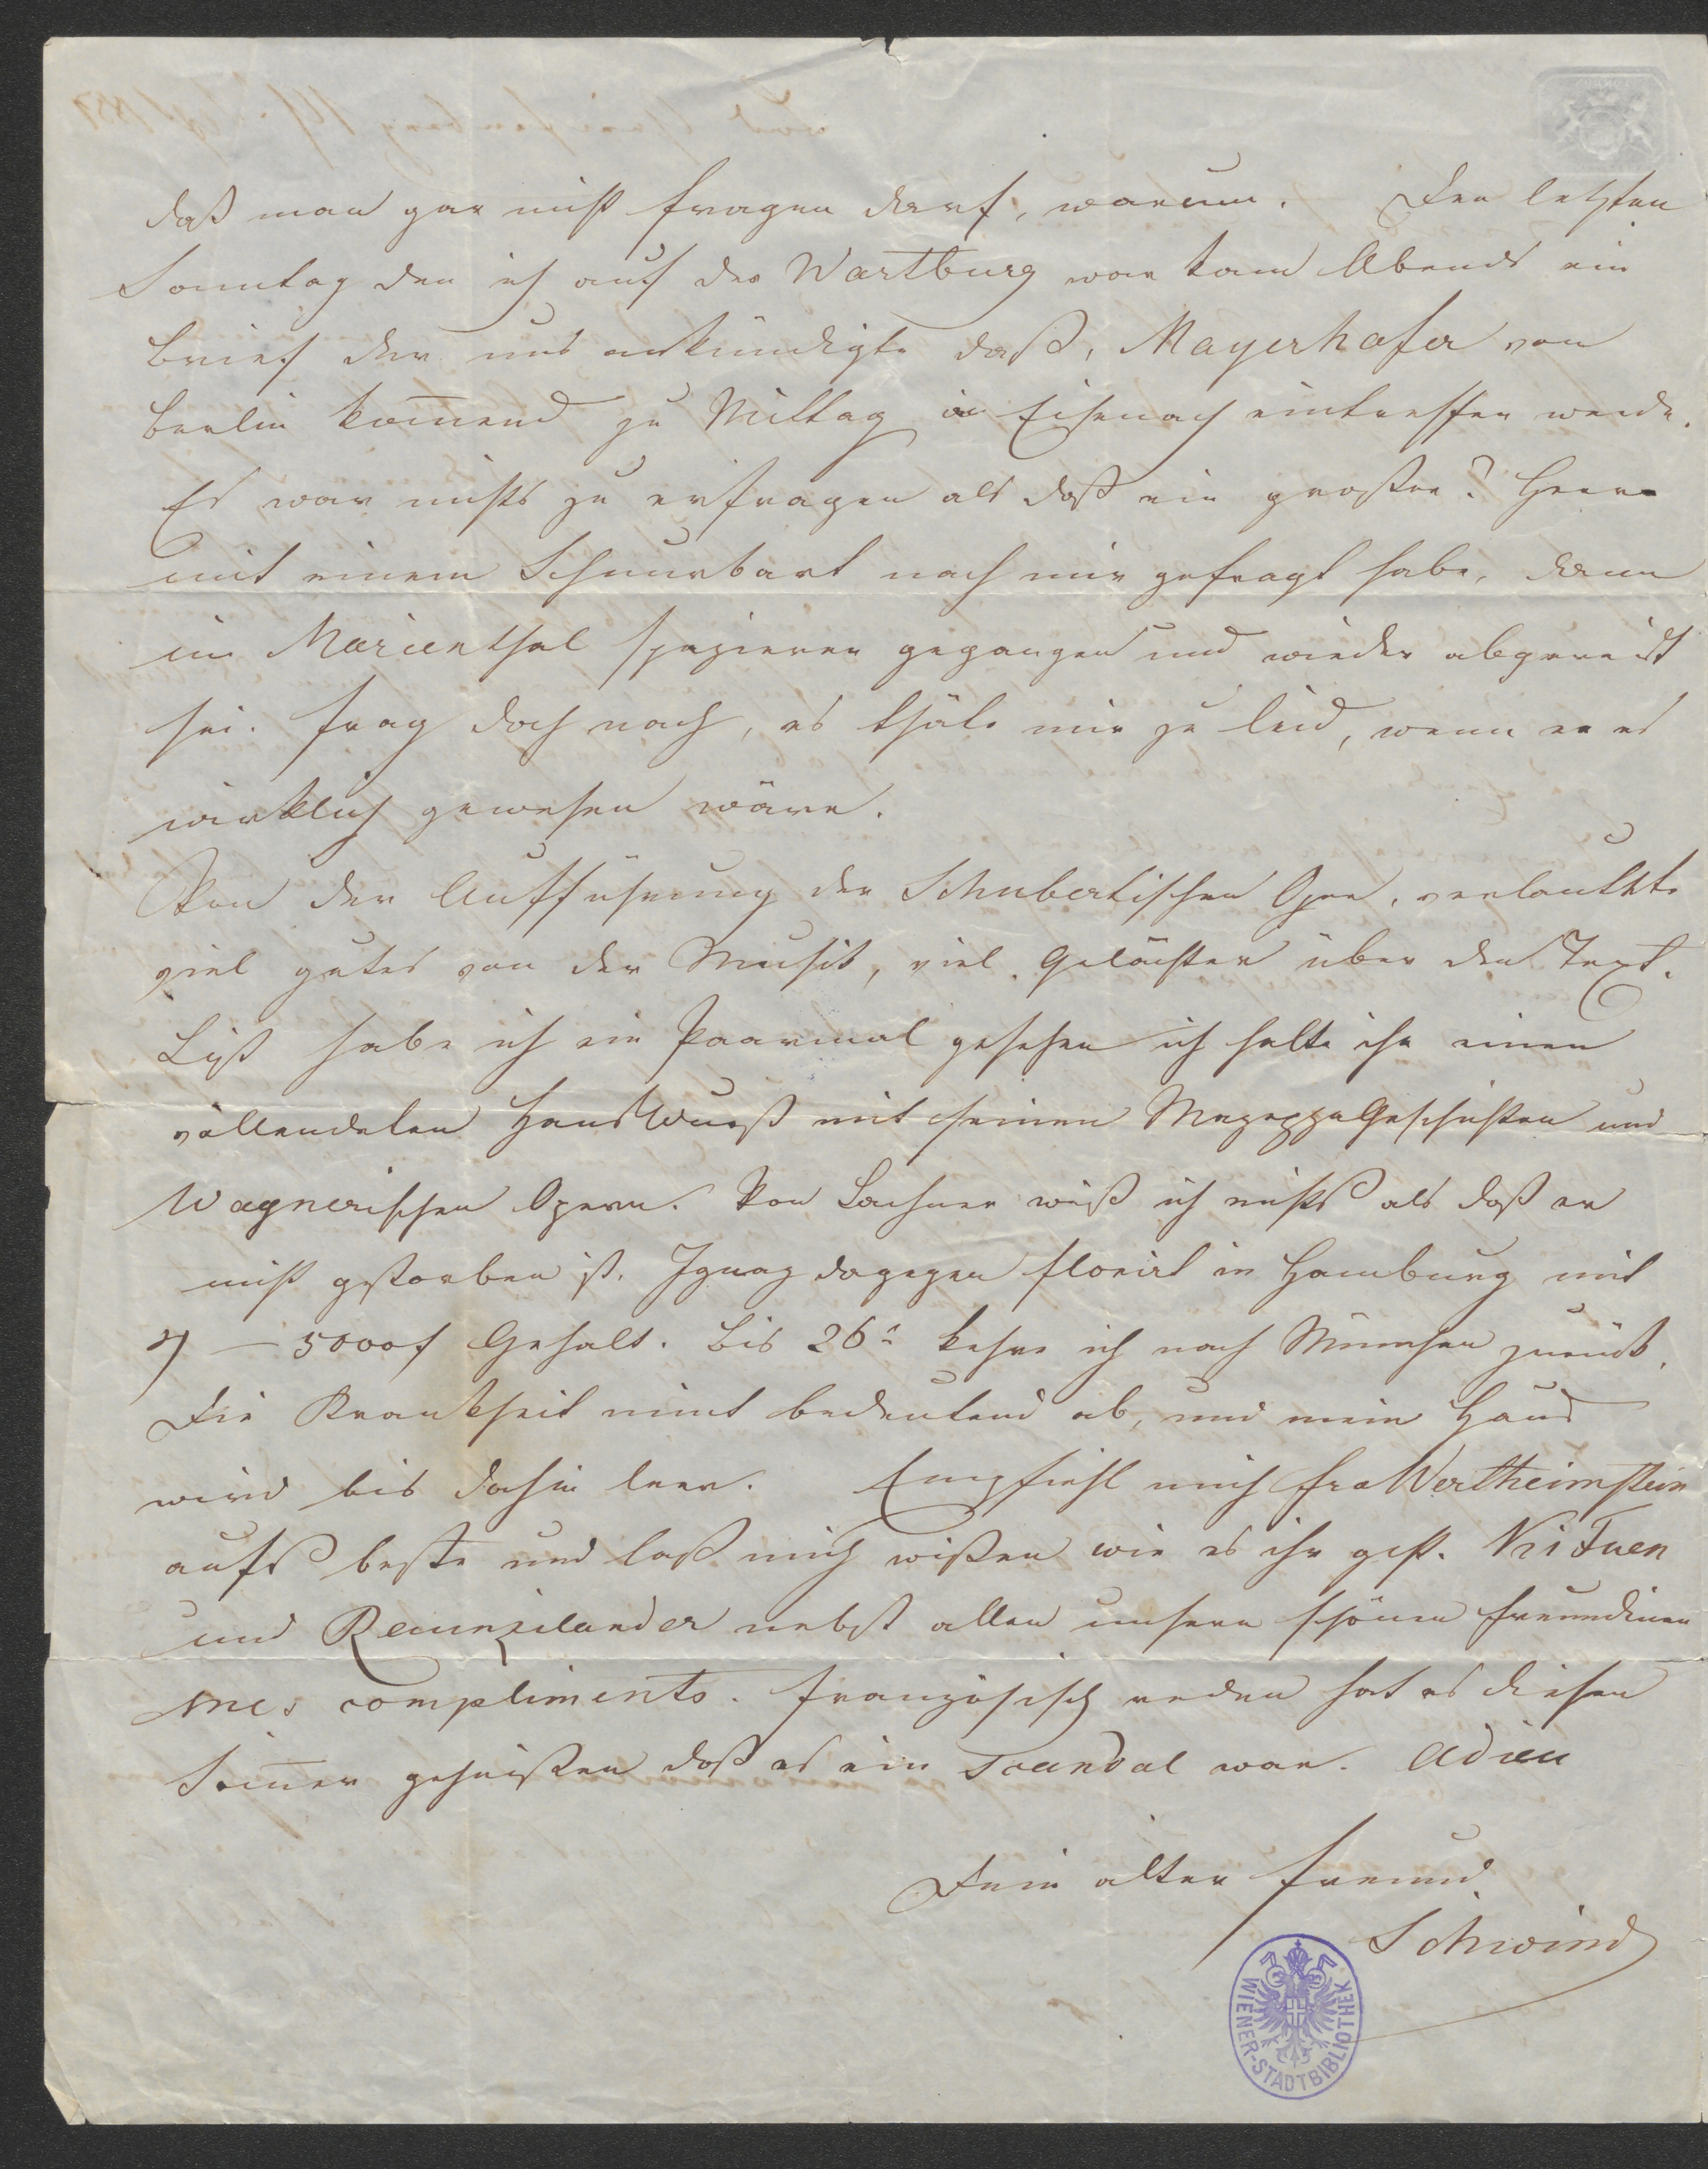 daß man gar nicht fragen darf, warum. Den letzten
Sonntag den ich auf der Wartburg war kam Abends ein
Brief der uns ankündigte daß, Mayerhofer von
Berlin kom̄end zu Mittag in Eisenach eintreffen werde.
Es war nichts zu erfragen als daß ein großer? Herr
mit einem Schnurbart nach mir gefragt habe, dann
im Marienthal spazieren gegangen und wieder abgereist
sei. Frag doch nach, es thäte mir zu leid, wenn er es
wirklich gewesen wäre.
Von der Aufführung der Schubertischen Oper, verlautete
viel gutes von der Musik, viel Gelächter über den Text.
Lißt habe ich ein Paarmal gesehen ich halte ihn einen
vollendeten Hanswurst mit seinen Mazeppa Geschichten und
Wagnerischen Opern. Von Lachner weiß ich nichts als daß er
nicht gestorben ist. Ignaz dagegen florirt in Hamburg mit
4 – 5000 f Gehalt. Bis 26t kehre ich nach München zurück.
Die Krankheit nimt bedeutend ab, und mein Haus
wird bis dahin leer. Empfiehl mich Fra Wertheimstein
aufs beste und laß mich wißen wie es ihr geht.
und nebst allen unsern schönen Freundinen
mes compliments. Französisch reden hat es diesen
Som̄er geheißen daß es ein Scandal war. Adieu
Dein alter Freund
Schwind
WIENER-STADTBIBLIOTHEK